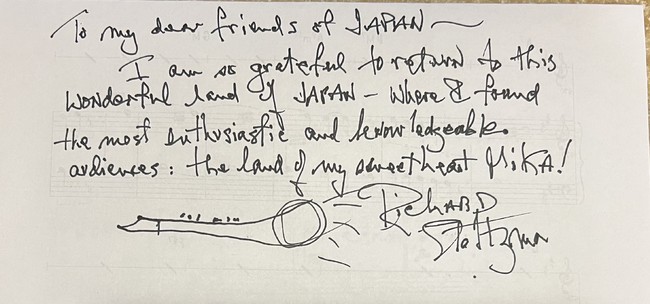 To my dear friends of JAPAN ~
I am so grateful to return to this
wonderful land of JAPAN - where I found
the most enthusiastic and knowledgeable
audiences: the land of my sweetheart MIKA!
RichARD
Stoltzman